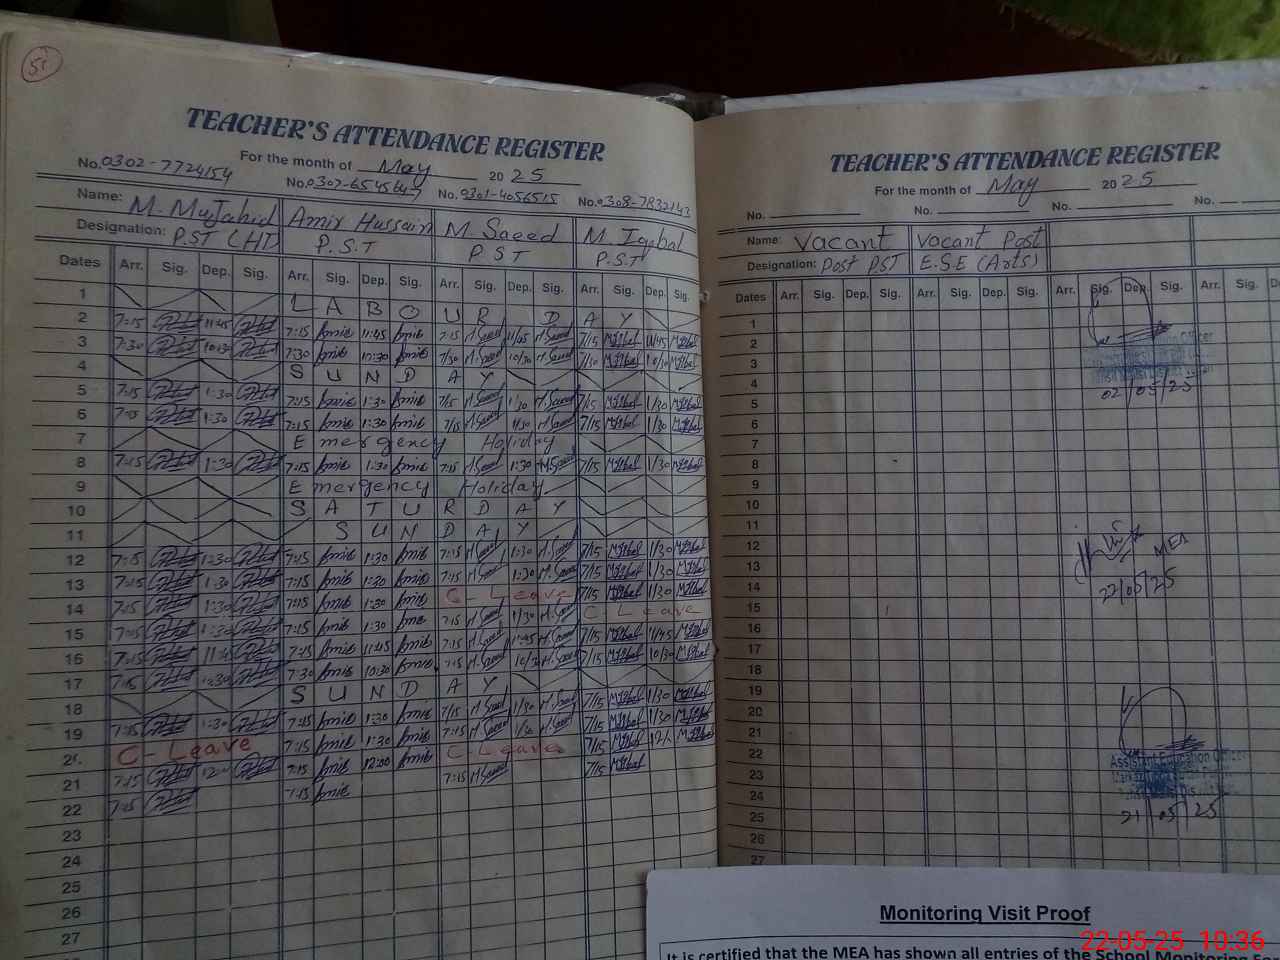 51
TEACHER'S ATTENDANCE REGISTER
For the month of May 2025
No. 0302-7724154 No. 0307-6545647 No. 0301-4056515 No. 0308-7832142
Name: M. Mujahid Amir Hussain M. Saeed M. Iqbal
Designation: P.ST (HT) P.S.T P S T P.S.T
Dates Arr. Sig. Dep. Sig. Arr. Sig. Dep. Sig. Arr. Sig. Dep. Sig. Arr. Sig. Dep. Sig.
1 LABOUR DAY
2 7:15 11:45 7:15 Amir 11:45 Amir 7:15 M.Saeed 11/45 M.Saeed 7/15 MIqbal 11/45 MIqbal
3 7:30 10:30 7:30 Amir 10:30 Amir 7/30 M.Saeed 10/30 M.Saeed 7/30 MIqbal 10/30 MIqbal
4 SUNDAY
5 7:15 1:30 7:15 Amir 1:30 Amir 7/15 M.Saeed 1/30 M.Saeed 7/15 MIqbal 1/30 MIqbal
6 7:15 1:30 7:15 Amir 1:30 Amir 7/15 M.Saeed 1/30 M.Saeed 7/15 MIqbal 1/30 MIqbal
7 Emergency Holiday
8 7:15 1:30 7:15 Amir 1:30 Amir 7:15 M.Saeed 1:30 M.Saeed 7/15 MIqbal 1/30 MIqbal
9 Emergency Holiday
10 SATURDAY
11 SUNDAY
12 7:15 1:30 7:15 Amir 1:30 Amir 7:15 M.Saeed 1:30 M.Saeed 7/15 MIqbal 1/30 MIqbal
13 7:15 1:30 7:15 Amir 1:30 Amir 7:15 M.Saeed 1:30 M.Saeed 7/15 MIqbal 1/30 MIqbal
14 7:15 1:30 7:15 Amir 1:30 Amir C-Leave 7/15 MIqbal 1/30 MIqbal
15 7:15 1:30 7:15 Amir 1:30 Amir 7:15 M.Saeed 1/30 M.Saeed C-Leave
16 7:15 11:45 7:15 Amir 11:45 Amir 7:15 M.Saeed 11:45 M.Saeed 7/15 MIqbal 11/45 MIqbal
17 7:15 10:30 7:30 Amir 10:30 Amir 7:15 M.Saeed 10/30 M.Saeed 7/15 MIqbal 10/30 MIqbal
18 SUNDAY
19 7:15 1:30 7:15 Amir 1:30 Amir 7/15 M.Saeed 1/30 M.Saeed 7/15 MIqbal 1/30 MIqbal
20 C-Leave 7:15 Amir 1:30 Amir 7:15 M.Saeed 1/30 M.Saeed 7/15 MIqbal 1/30 MIqbal
21 7:15 12:00 7:15 Amir 12:00 Amir C-Leave 7/15 MIqbal 12/. MIqbal
22 7:15 7:15 Amir 7:15 M.Saeed 7/15 MIqbal
23
24
25
26
27
TEACHER'S ATTENDANCE REGISTER
For the month of May 2025
No. No. No. No.
Name: Vacant Vacant Post
Designation: Post PST E.S.E (Arts)
Dates Arr. Sig. Dep. Sig. Arr. Sig. Dep. Sig. Arr. Sig. Dep. Sig. Arr. Sig. D
1
2
3
4
02/05/25
5
6
7
8
9
10
11
12
MEA
13
14
22/05/25
15
16
17
18
19
20
21
22
Assistant Education Officer
23
24
25
21/05/25
26
27
Monitoring Visit Proof
It is certified that the MEA has shown all entries of the School Monitoring For
22-05-25 10:36